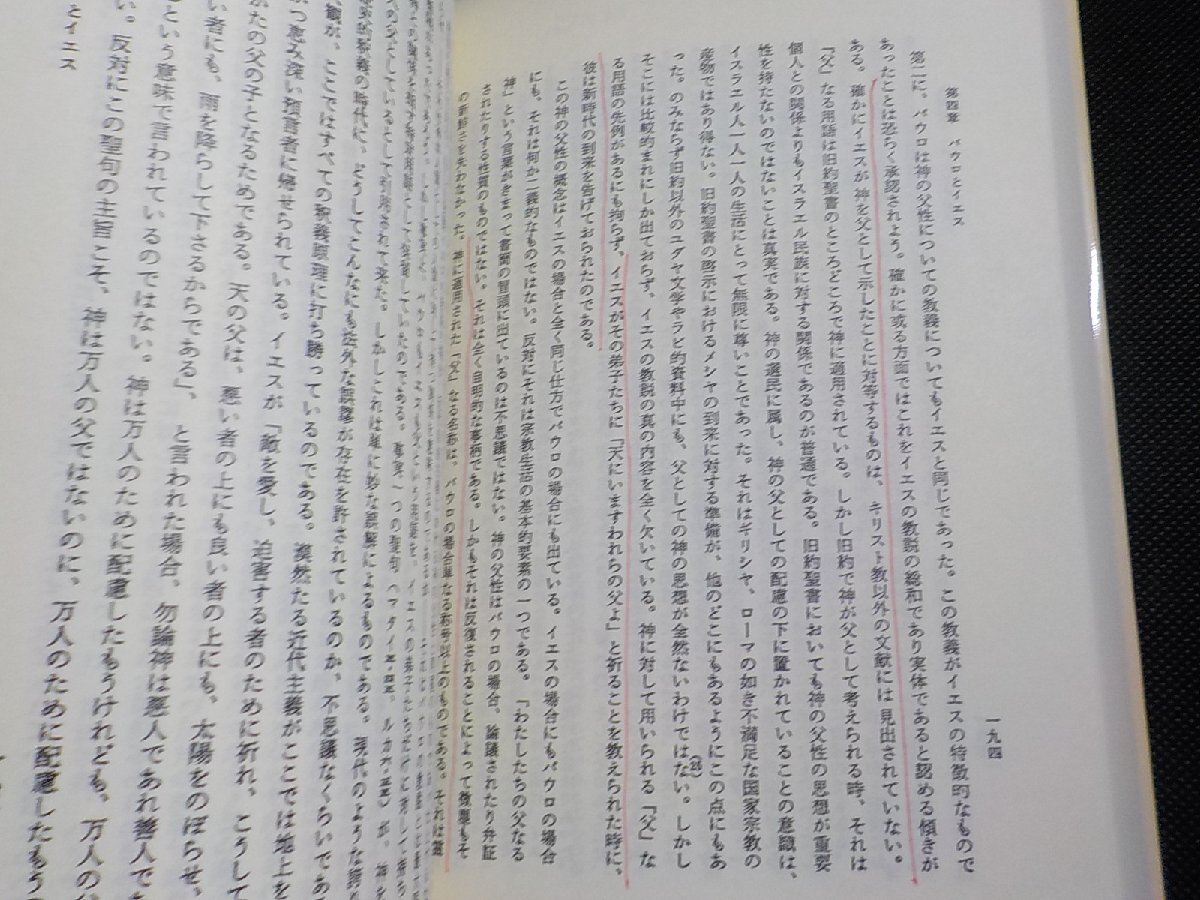 第四章 パウロとイエス
一九四
第二に、パウロは神の父性についての教義についてもイエスと同じであった。この教義がイエスの特徴的なもので
あったことは恐らく承認されよう。確かに或る方面ではこれをイエスの教説の総和であり実体であると認める傾きが
ある。確かにイエスが神を父として示したことに対等するものは、キリスト教以外の文献には見出されていない。
『父』なる用語は旧約聖書のところどころで神に適用されている。しかし旧約で神が父として考えられる時、それは
個人との関係よりもイスラエル民族に対する関係であるのが普通である。旧約聖書においても神の父性の思想が重要
性を持たないのではないことは真実である。神の選民に属し、神の父としての配慮の下に置かれていることの意識は、
イスラエル人一人一人の生活にとって無限に尊いことであった。それはギリシヤ、ローマの如き不満足な国家宗教の
産物ではあり得ない。旧約聖書の啓示におけるメシヤの到来に対する準備が、他のどこにもあるようにこの点にもあ
った。のみならず旧約以外のユダヤ文学やラビ的資料中にも、父としての神の思想が全然ないわけではない。(25)しかし
そこには比較的まれにしか出ておらず、イエスの教説の真の内容を全く欠いている。神に対して用いられる「父」な
る用語の先例があるにも拘らず、イエスがその弟子たちに「天にいますわれらの父よ」と祈ることを教えられた時に、
彼は新時代の到来を告げておられたのである。
この神の父性の概念はイエスの場合と全く同じ仕方でパウロの場合にも出ている。イエスの場合にもパウロの場合
にも、それは何か二義的なものではない。反対にそれは宗教生活の基本的要素の一つである。「わたしたちの父なる
神」という言葉がきまって書簡の冒頭に出ているのは不思議ではない。神の父性はパウロの場合、論議されたり弁証
されたりする性質のものではない。それは全く自明的な事柄である。しかもそれは反復されることによって微塵もそ
の新鮮さを失わなかった。神に適用された「父」なる名称は、パウロの場合単なる称号以上のものである。それは
の父としているとして引用されて来た。しかしこれは単に妙な誤解によるものである。現代のような誇
釈義の時代に、どうしてこんなにも法外な誤謬が存在を許されているのか、不思議なくらいであ
観が、ここではすべての釈義原理に打ち勝っているのである。漠然たる近代主義がここでは地上を
つ恵み深い預言者に帰せられている。イエスが「敵を愛し、迫害する者のために祈れ。こうして
がたの父の子となるためである。天の父は、悪い者の上にも良い者の上にも、太陽をのぼらせ、
い者にも、雨を降らして下さるからである」、と言われた場合、勿論神は悪人であれ善人で
という意味で言われているのではない。神は万人のために配慮したもうけれども、万人の父
い。反対にこの聖句の主旨こそ、神は万人の父ではないのに、万人のために配慮したもう
とイエス